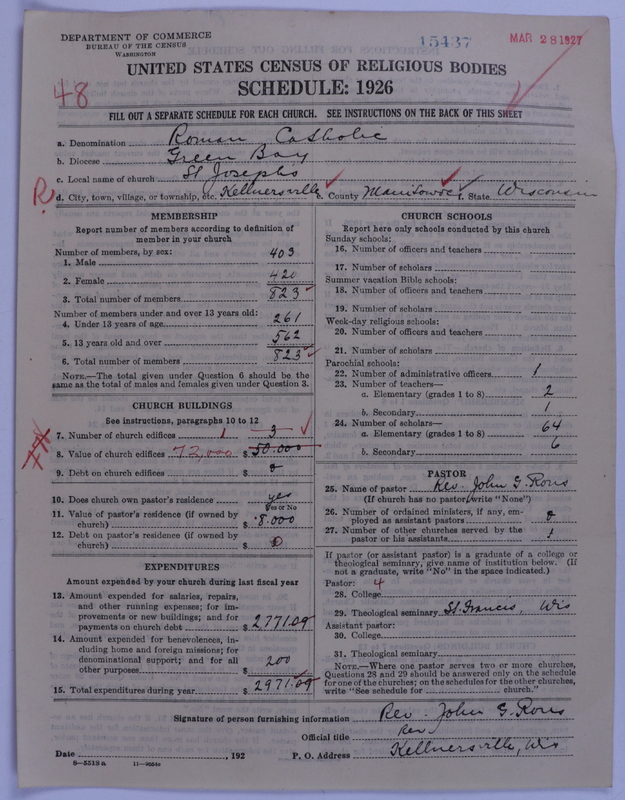 DEPARTMENT OF COMMERCE
BUREAU OF THE CENSUS
WASHINGTON
15437
MAR 28 1927
48
UNITED STATES CENSUS OF RELIGIOUS BODIES
SCHEDULE: 1926
FILL OUT A SEPARATE SCHEDULE FOR EACH CHURCH. SEE INSTRUCTIONS ON THE BACK OF THIS SHEET
a. Denomination Roman Catholic
b. Diocese Green Bay
c. Local name of church St Josephs
R d. City, town, village, or township, etc. Kellnersville e. County Manitowoc f. State Wisconsin
MEMBERSHIP
Report number of members according to definition of
member in your church
Number of members, by sex:
1. Male 403
2. Female 420
3. Total number of members 823
Number of members under and over 13 years old:
4. Under 13 years of age 261
5. 13 years old and over 562
6. Total number of members 823
NOTE.—The total given under Question 6 should be the
same as the total of males and females given under Question 3.
CHURCH BUILDINGS
See instructions, paragraphs 10 to 12
7. Number of church edifices 1 3
8. Value of church edifices 72,000 $ 50.000
9. Debt on church edifices $ 0
10. Does church own pastor's residence yes
Yes or No
11. Value of pastor's residence (if owned by
church) $ 8.000
12. Debt on pastor's residence (if owned by
church) $ 0
EXPENDITURES
Amount expended by your church during last fiscal year
13. Amount expended for salaries, repairs,
and other running expenses; for im-
provements or new buildings; and for
payments on church debt $ 2771.09
14. Amount expended for benevolences, in-
cluding home and foreign missions; for
denominational support; and for all
other purposes $ 200
15. Total expenditures during year $ 2971.09
CHURCH SCHOOLS
Report here only schools conducted by this church
Sunday schools:
16. Number of officers and teachers
17. Number of scholars
Summer vacation Bible schools:
18. Number of officers and teachers
19. Number of scholars
Week-day religious schools:
20. Number of officers and teachers
21. Number of scholars
Parochial schools:
22. Number of administrative officers 1
23. Number of teachers—
a. Elementary (grades 1 to 8) 2
b. Secondary 1
24. Number of scholars—
a. Elementary (grades 1 to 8) 64
b. Secondary 6
PASTOR
25. Name of pastor Rev. John G.
(If church has no pastor, write "None")
26. Number of ordained ministers, if any, em-
ployed as assistant pastors 0
27. Number of other churches served by the
pastor or his assistants 1
If pastor (or assistant pastor) is a graduate of a college or
theological seminary, give name of institution below. (If
not a graduate, write "No" in the space indicated.)
Pastor: 4
28. College
29. Theological seminary St. Francis, Wis
Assistant pastor:
30. College
31. Theological seminary
NOTE.—Where one pastor serves two or more churches,
Questions 28 and 29 should be answered only on the schedule
for one of the churches; on the schedules for the other churches,
write "See schedule for church."
Signature of person furnishing information Rev. John G.
Official title Rev
Date , 192 P. O. Address Kellnersville, Wis
8—5518a